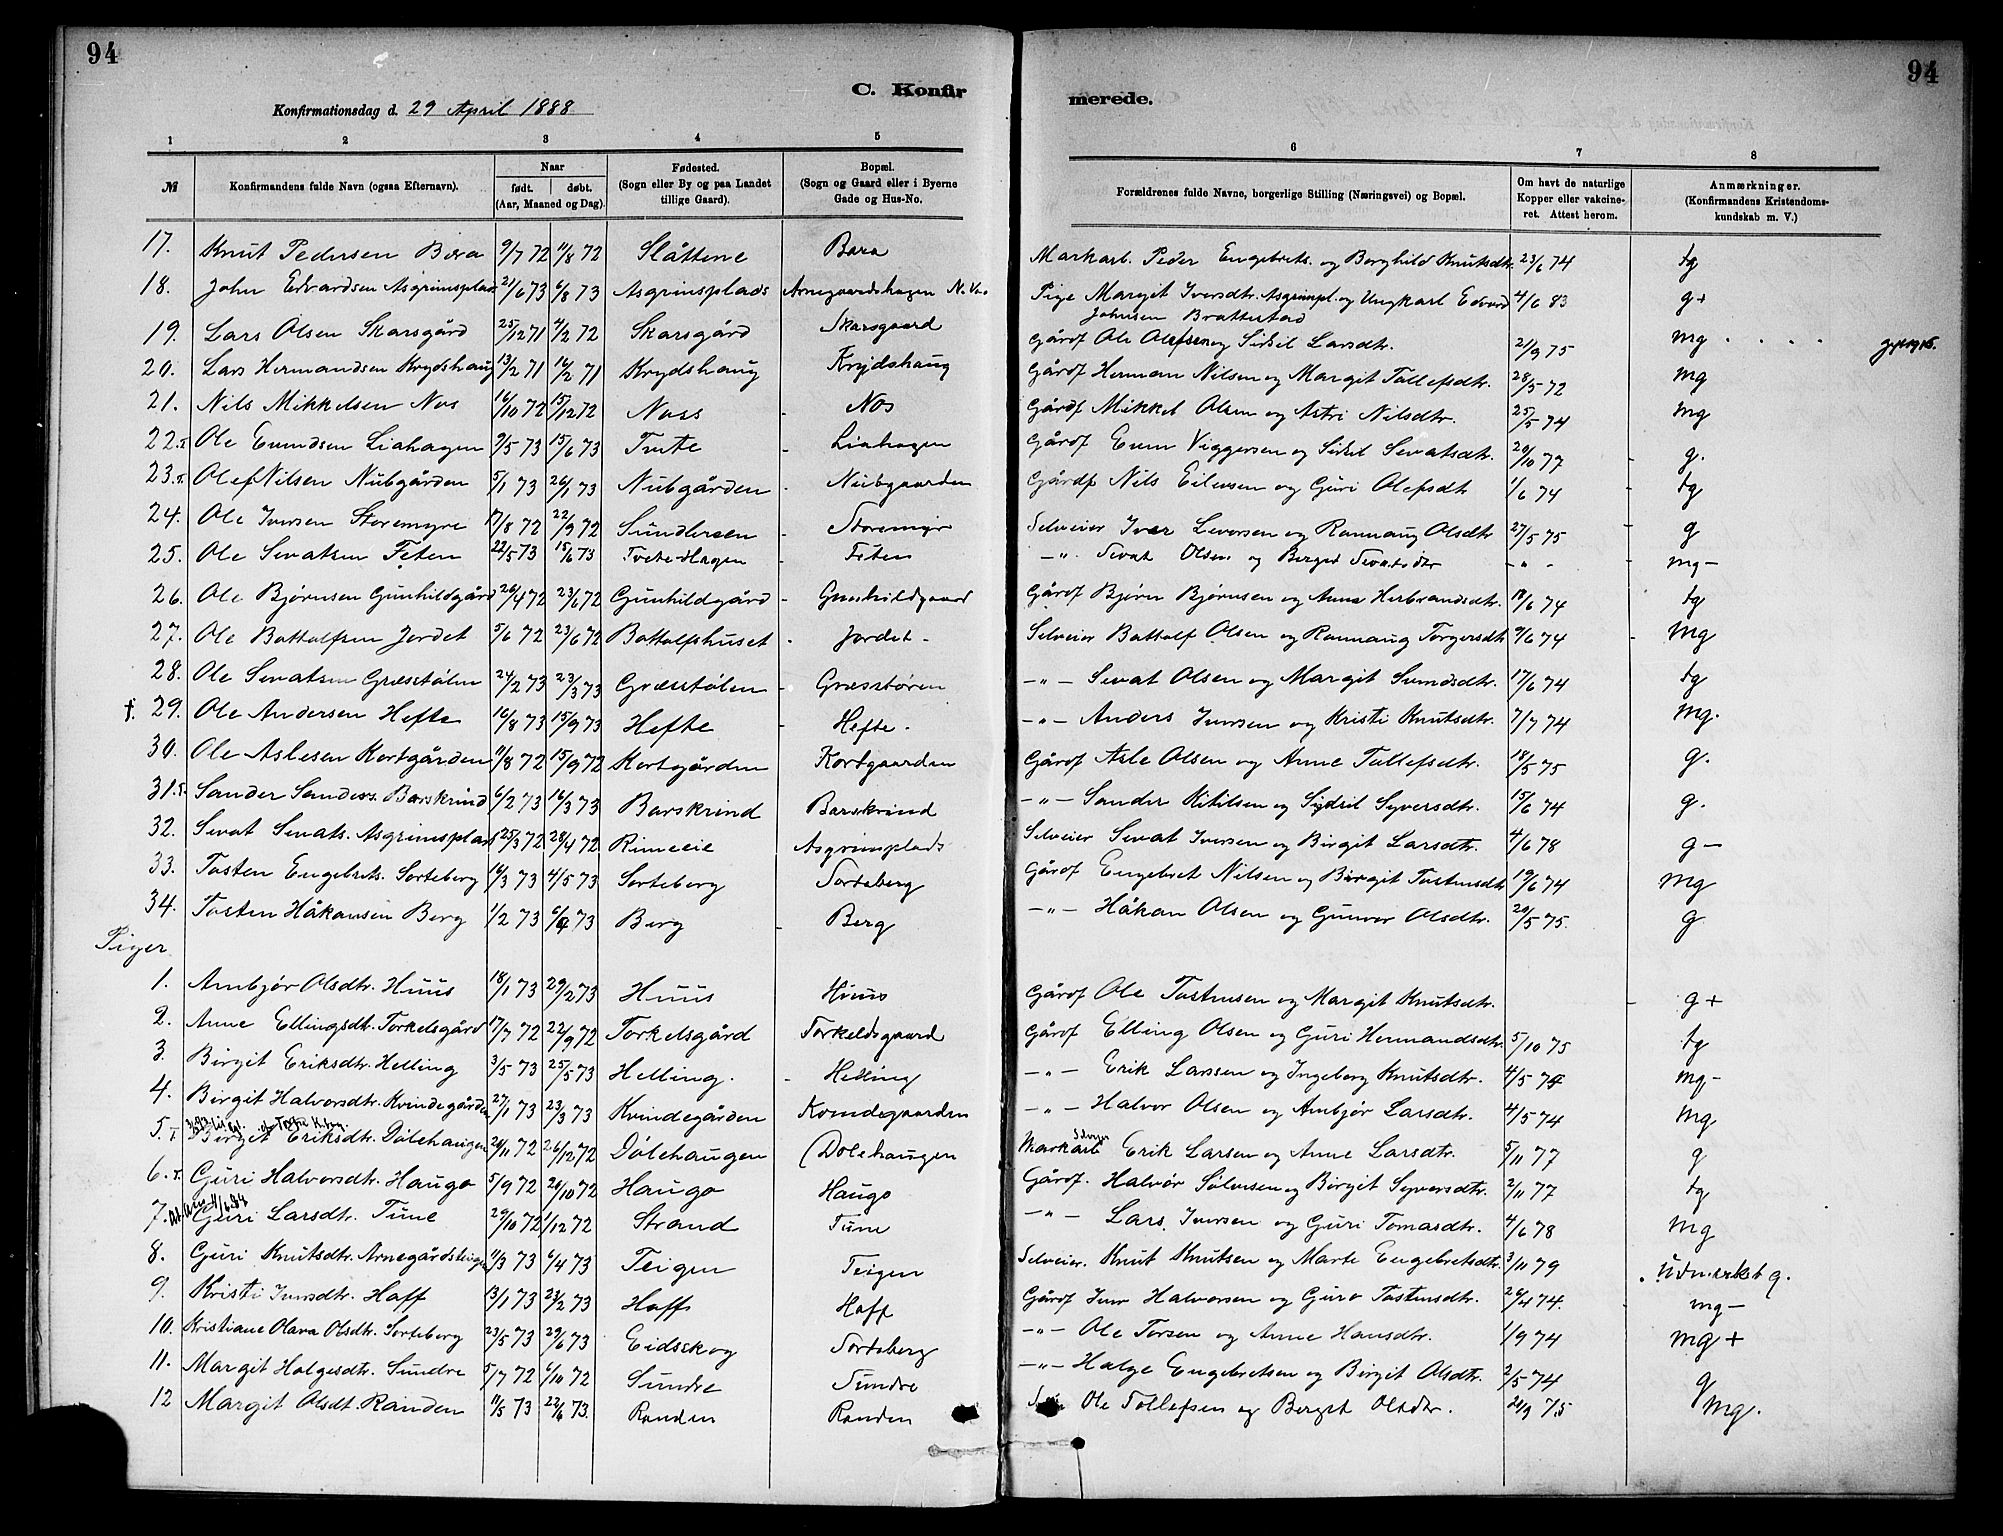 94
94
C. Konfir
merede.
Konfirmationsdag d. 29 April 1888
1 2 3 4 5
6 7 8
№ Konfirmandens fulde Navn (ogsaa Efternavn). Naar født. døbt. (Aar, Maaned og Dag). Fødested. (Sogn eller By og paa Landet tillige Gaard). Bopæl. (Sogn og Gaard eller i Byerne Gade og Hus-No.
Forældrenes fulde Navne, borgerlige Stilling (Næringsvei) og Bopæl. Om havt de naturlige Kopper eller vakcineret. Attest herom. Anmærkninger. (Konfirmandens Kristendomskundskab m. V.)
17. Knut Pedersen Bæra 9/7 72 11/8 72 Slåttene Markarb. Peder Engebrets. og Borghild Knutsdtr. 23/6 74 tg
18. John Edvardsen Asgrimsplads 21/6 73 6/8 73 Asgrimsplads Arnegaardshagen Pige Margit Iversdtr. Asgrimspl. og Ungkarl Edvard 4/6 83 g+
Johnsen Brattestad
19. Lars Olsen Skarsgård 25/12 71 4/2 72 Skarsgård Skarsgaard Gårdf Ole Olefsen og Sidsel Larsdtr. 2/9 75 mg
20. Lars Hermandsen Krydshaug 13/2 71 16/2 71 Krydshaug Krydshaug Gårdf Herman Nilsen og Margit Tollefsdtr. 28/5 72 mg
21. Nils Mikkelsen Nos 16/10 72 15/12 72 Noss Nos Gårdf Mikkel Olsen og Astri Nilsdtr. 25/5 74 mg
22. Ole Evendsen Liahagen 9/5 73 15/6 73 Tvete Liahagen Gårdf Even Viggersen og Sidsel Sevatsdtr. 20/10 77 g.
23. Olef Nilsen Nubgården 5/1 73 26/1 73 Nubgården Nubgaarden Gårdf Nils Eilevsen og Guri Olefsdtr 1/6 74 tg
24. Ole Iversen Storemyre 17/8 72 22/9 72 Sundleren Storemyr Selveier Iver Leversen og Rannaug Olsdtr 27/5 75 g
25. Ole Sevatsen Feten 22/5 73 15/6 73 Tvete-Hagen Feten -"- Sevat Olsen og Berget Sevatsdtr -"- mg-
26. Ole Bjørnsen Gunhildgård 26/4 72 23/6 72 Gunhildgård Gunhildgaard Gårdf Bjørn Bjørnsen og Anne Herbrandsdtr. 18/6 74 tg
27. Ole Bottolfsen Jordet 5/6 72 23/6 72 Bottolfshuset Jordet Selveier Bottolf Olsen og Rannaug Torgersdtr 9/6 74 mg
28. Ole Sevatsen Græsstølen 24/2 73 23/3 73 Græsstølen Græsstøren -"- Sevat Olsen og Margit Svendsdtr. 17/6 74 tg
29. Ole Andersen Hefte 16/8 73 15/9 73 Hefte Hefte -"- Anders Iversen og Kristi Knutsdtr. 7/7 74 mg.
30. Ole Aslesen Kortgården 11/8 72 15/9 72 Kortgården Kortgaarden Gårdf Asle Olsen og Anne Tollefsdtr. 18/5 75 g.
31. Sander Sanders. Barskrind 6/2 73 16/3 73 Barskrind Barskrind -"- Sander Kitilsen og Sidsil Syversdtr. 15/6 74 g.
32. Sevat Sevats. Asgrimsplads 25/3 72 28/4 72 Rimeeie Asgrimsplads Selveier Sevat Iversen og Birgit Larsdtr. 4/6 78 g-
33. Tosten Engebrets. Sorteberg 16/3 73 4/5 73 Sorteberg Sorteberg Gårdf Engebret Nilsen og Birgit Tostensdtr 19/6 74 mg
34. Tosten Håkansen Berg 1/2 73 6/4 73 Berg Berg -"- Håkan Olsen og Gunvor Olsdtr. 20/5 75. g
Piger
1. Ambjør Olsdtr. Huus 18/1 73 Huus Huus Gårdf Ole Tostensen og Margit Knutsdtr. g+
2. Anne Ellingsdtr. Torkelsgård 17/7 72 22/9 72 Torkelsgård Torkeldsgaard Gårdf Elling Olsen og Guri Hermandsdtr. 5/10 75 tg
3. Birgit Eriksdtr. Helling 3/5 73 25/5 73 Helling. Helling -"- Erik Larssen og Ingeborg Knutsdtr. 4/5 74 mg-
4. Birgit Halvorsdtr. Kvindegården 27/1 73 23/3 73 Kvindegården Kvindegaarden -"- Halvor Olsen og Ambjør Larsdtr. 4/5 74 mg
5. Birget Eriksdtr. Dölehaugen 20/11 72 26/12 72 Dölehaugen Dolehaugen Markarb Erik Larsen og Anne Larsdtr. 5/11 77 g
6. Guri Halvorsdtr. Haugo 5/9 72 20/10 72 Haugo Haugo Gårdf. Halvor Sølvesen og Birgit Syversdtr. 2/11 77 tg
7. Guri Larsdtr. Tune 29/10 72 1/12 72 Strand Tune -"- Lars Iversen og Guri Tomasdtr. 4/6 78 mg
8. Guri Knutsdtr. Arnegårdsteigen 11/3 73 6/4 73 Teigen Teigen Selveier. Knut Knutsen og Marte Engebretsdtr. 3/11 79 Udmærket g.
9. Kristi Iversdtr. Hoff 13/1 73 23/2 73 Hoff Hoff Gårdf Iver Halvorsen og Guro Tostensdtr. 26/4 74. mg-
10. Kristiane Olava Olsdtr. Sorteberg 23/5 73 29/6 73 Eidsskog Sorteberg -"- Ole Torsen og Anne Hansdtr. 1/9 74 mg+
11. Margit Holgesdtr. Sundre 5/7 72 6/10 72 Sundre Sundre -"- Holge Engebretsen og Birgit Olsdtr. 2/5 74 g
12 Margit Olsdt. Randen 11/5 73 22/6 73. Randen Randen Ole Tollefsen og Berget Olsdtr. 20/9 75 mg.